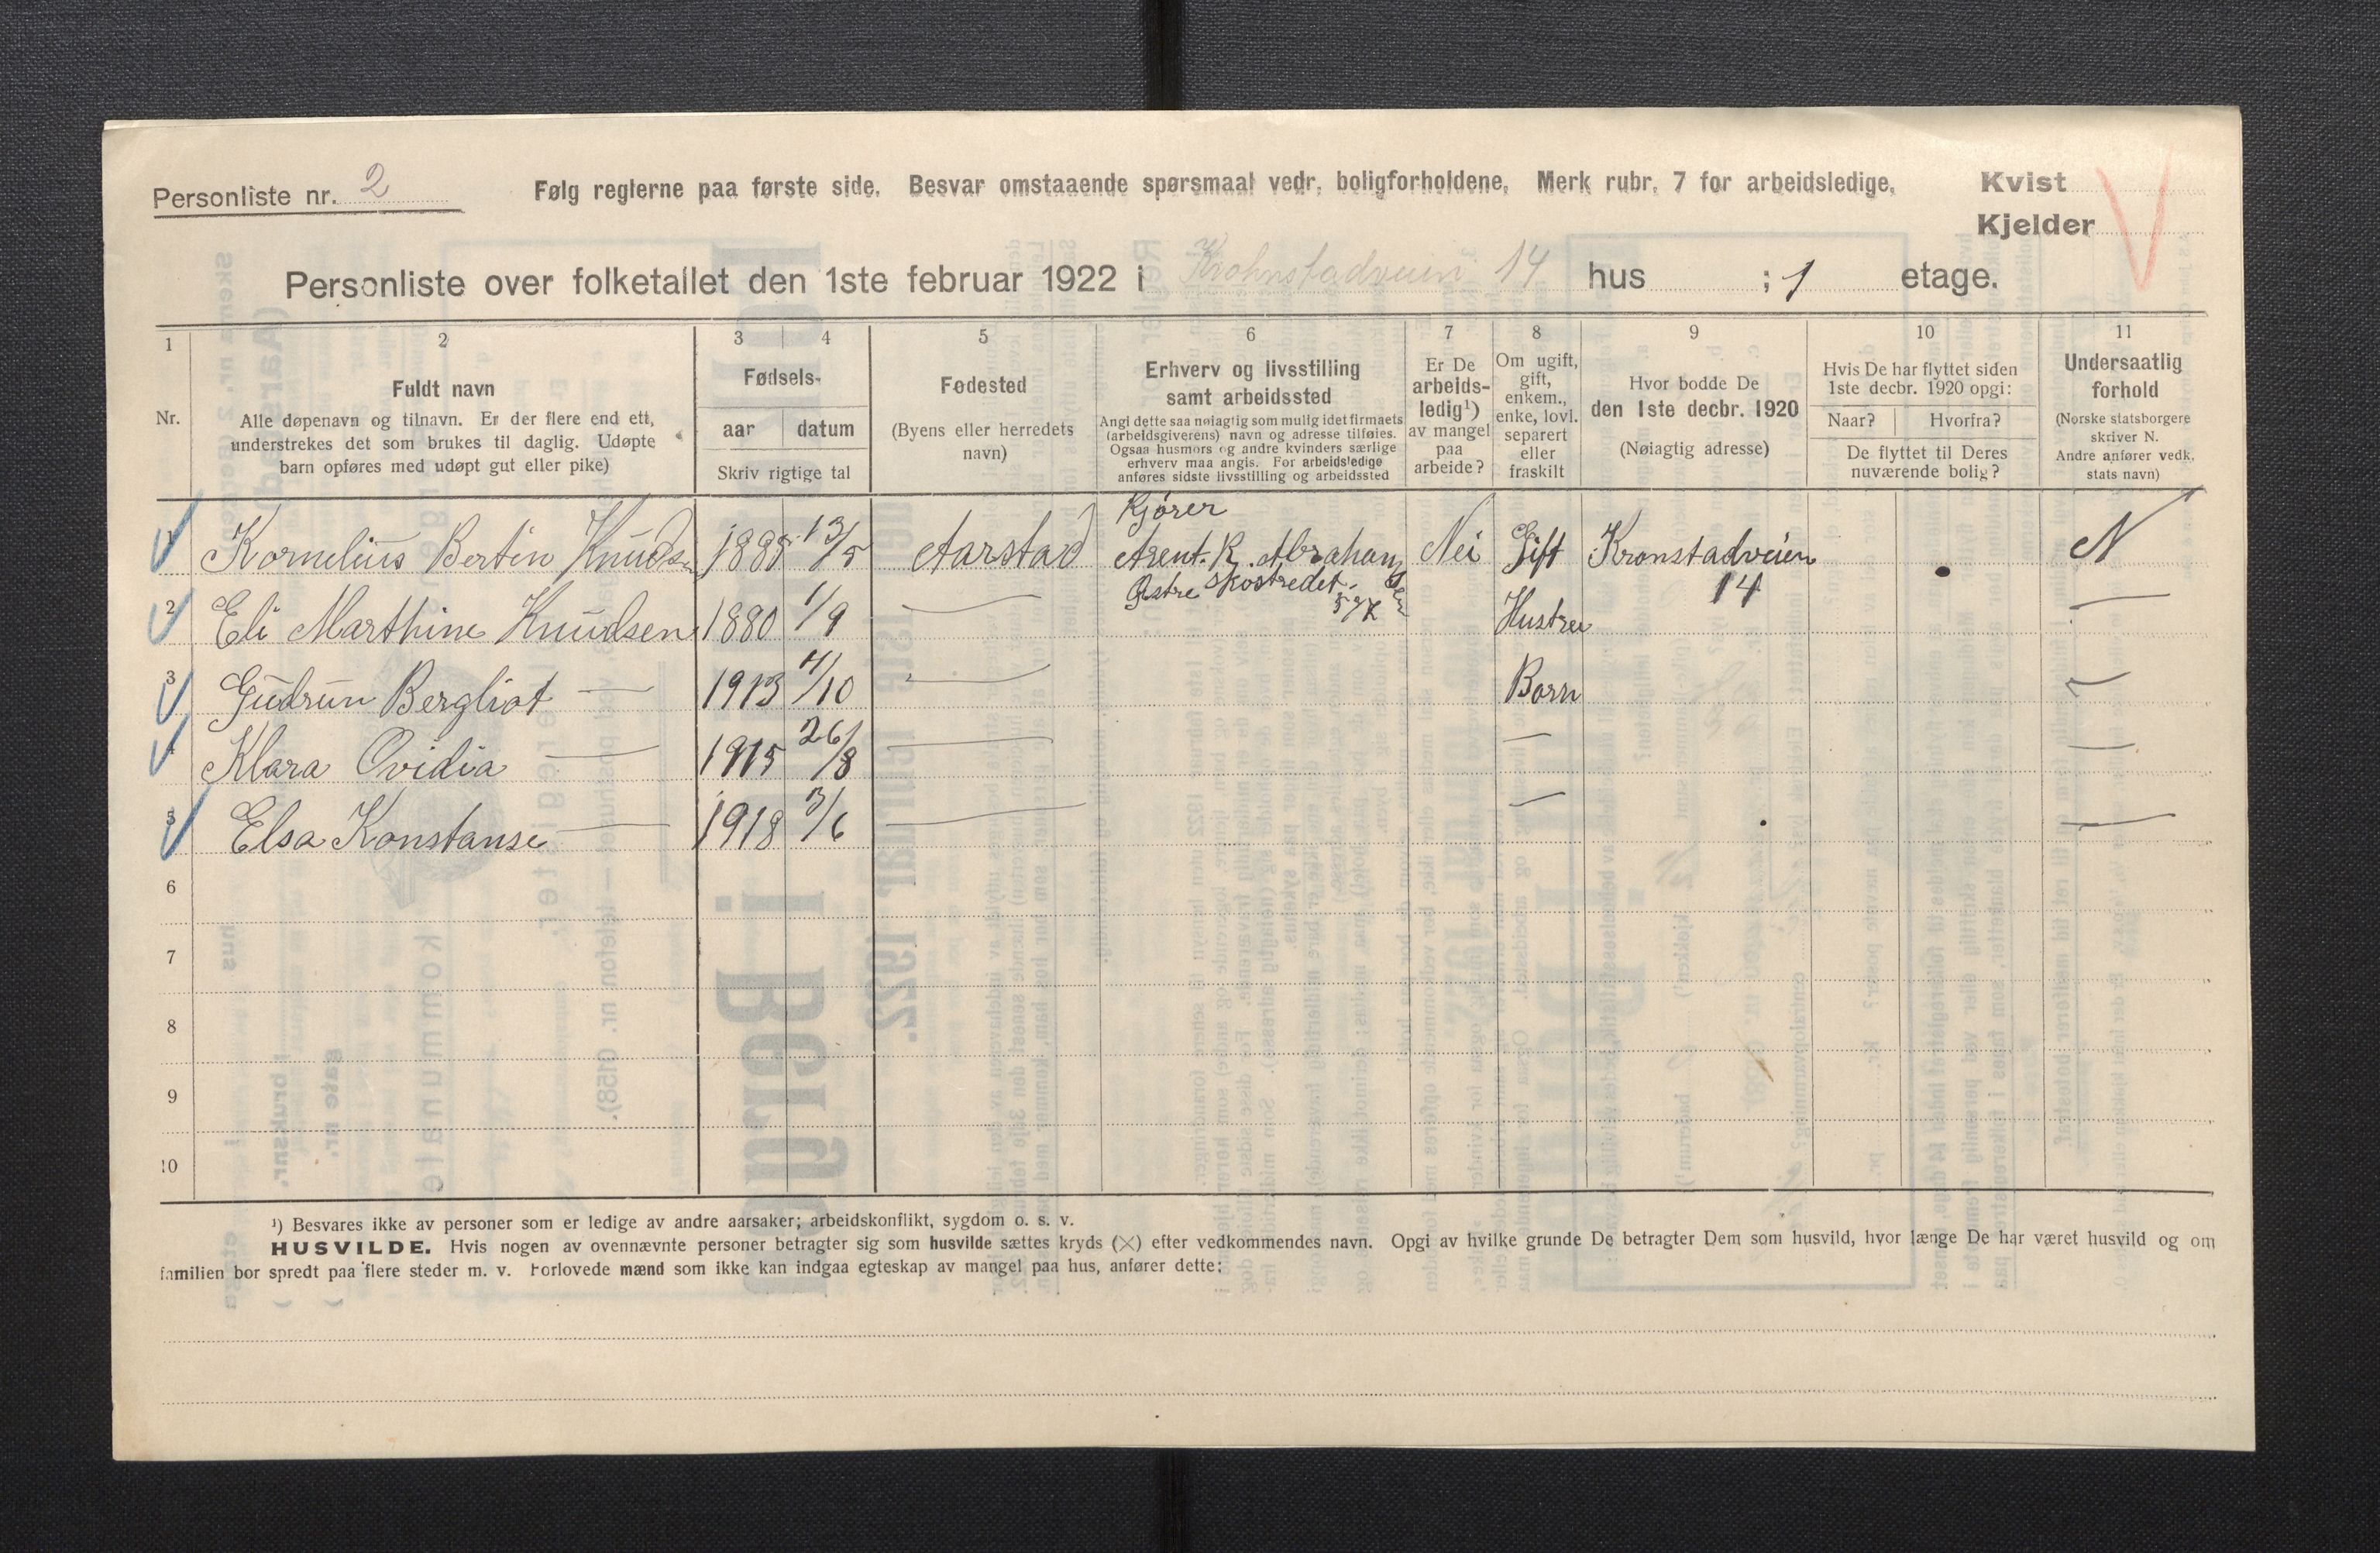 Personliste nr. 2
Følg reglerne paa første side. Besvar omstaaende spørsmaal vedr. boligforholdene. Merk rubr. 7 for arbeidsledige.
Kvist
Kjelder
Personliste over folketallet den 1ste februar 1922 i Krohnstadveien 14 hus ; 1 etage.
1 2 3 4 5 6 7 8 9 10 11
Nr.
Fuldt navn
Alle døpenavn og tilnavn. Er der flere end ett,
understrekes det som brukes til daglig. Udøpte
barn opføres med udøpt gut eller pike)
Fødsels-
aar datum
Skriv rigtige tal
Fødested
(Byens eller herredets
navn)
Erhverv og livsstilling
samt arbeidssted
Angi dette saa nøiagtig som mulig idet firmaets
(arbeidsgiverens) navn og adresse tilføies.
Ogsaa husmors og andre kvinders særlige
erhverv maa angis. For arbeidsledige
anføres sidste livsstilling og arbeidssted
Er De
arbeids-
ledig¹)
av mangel
paa
arbeide?
Om ugift,
gift,
enkem.,
enke, lovl.
separert
eller
fraskilt
Hvor bodde De
den 1ste decbr. 1920
(Nøiagtig adresse)
Hvis De har flyttet siden
1ste decbr. 1920 opgi:
Naar? Hvorfra?
De flyttet til Deres
nuværende bolig?
Undersaatlig
forhold
(Norske statsborgere
skriver N.
Andre anfører vedk.
stats navn)
Kjører
1 Kornelius Bertin Knudsen 1885 13/5 Aarstad Arent. R. Abrahamsen Nei Gift Kronstadveien N
Østre Skostredet 14
2 Eli Marthine Knudsen 1880 1/9 — Hustru —
3 Gudrun Bergliot — 1913 4/10 — Barn —
4 Klara Ovidia — 1915 26/8 — — —
5 Elsa Konstanse — 1918 3/6 — — —
6
7
8
9
10
¹) Besvares ikke av personer som er ledige av andre aarsaker; arbeidskonflikt, sygdom o. s. v.
HUSVILDE. Hvis nogen av ovennævnte personer betragter sig som husvilde sættes kryds (×) efter vedkommendes navn. Opgi av hvilke grunde De betragter Dem som husvild, hvor længe De har været husvild og om
familien bor spredt paa flere steder m. v. Forlovede mænd som ikke kan indgaa egteskap av mangel paa hus, anfører dette: